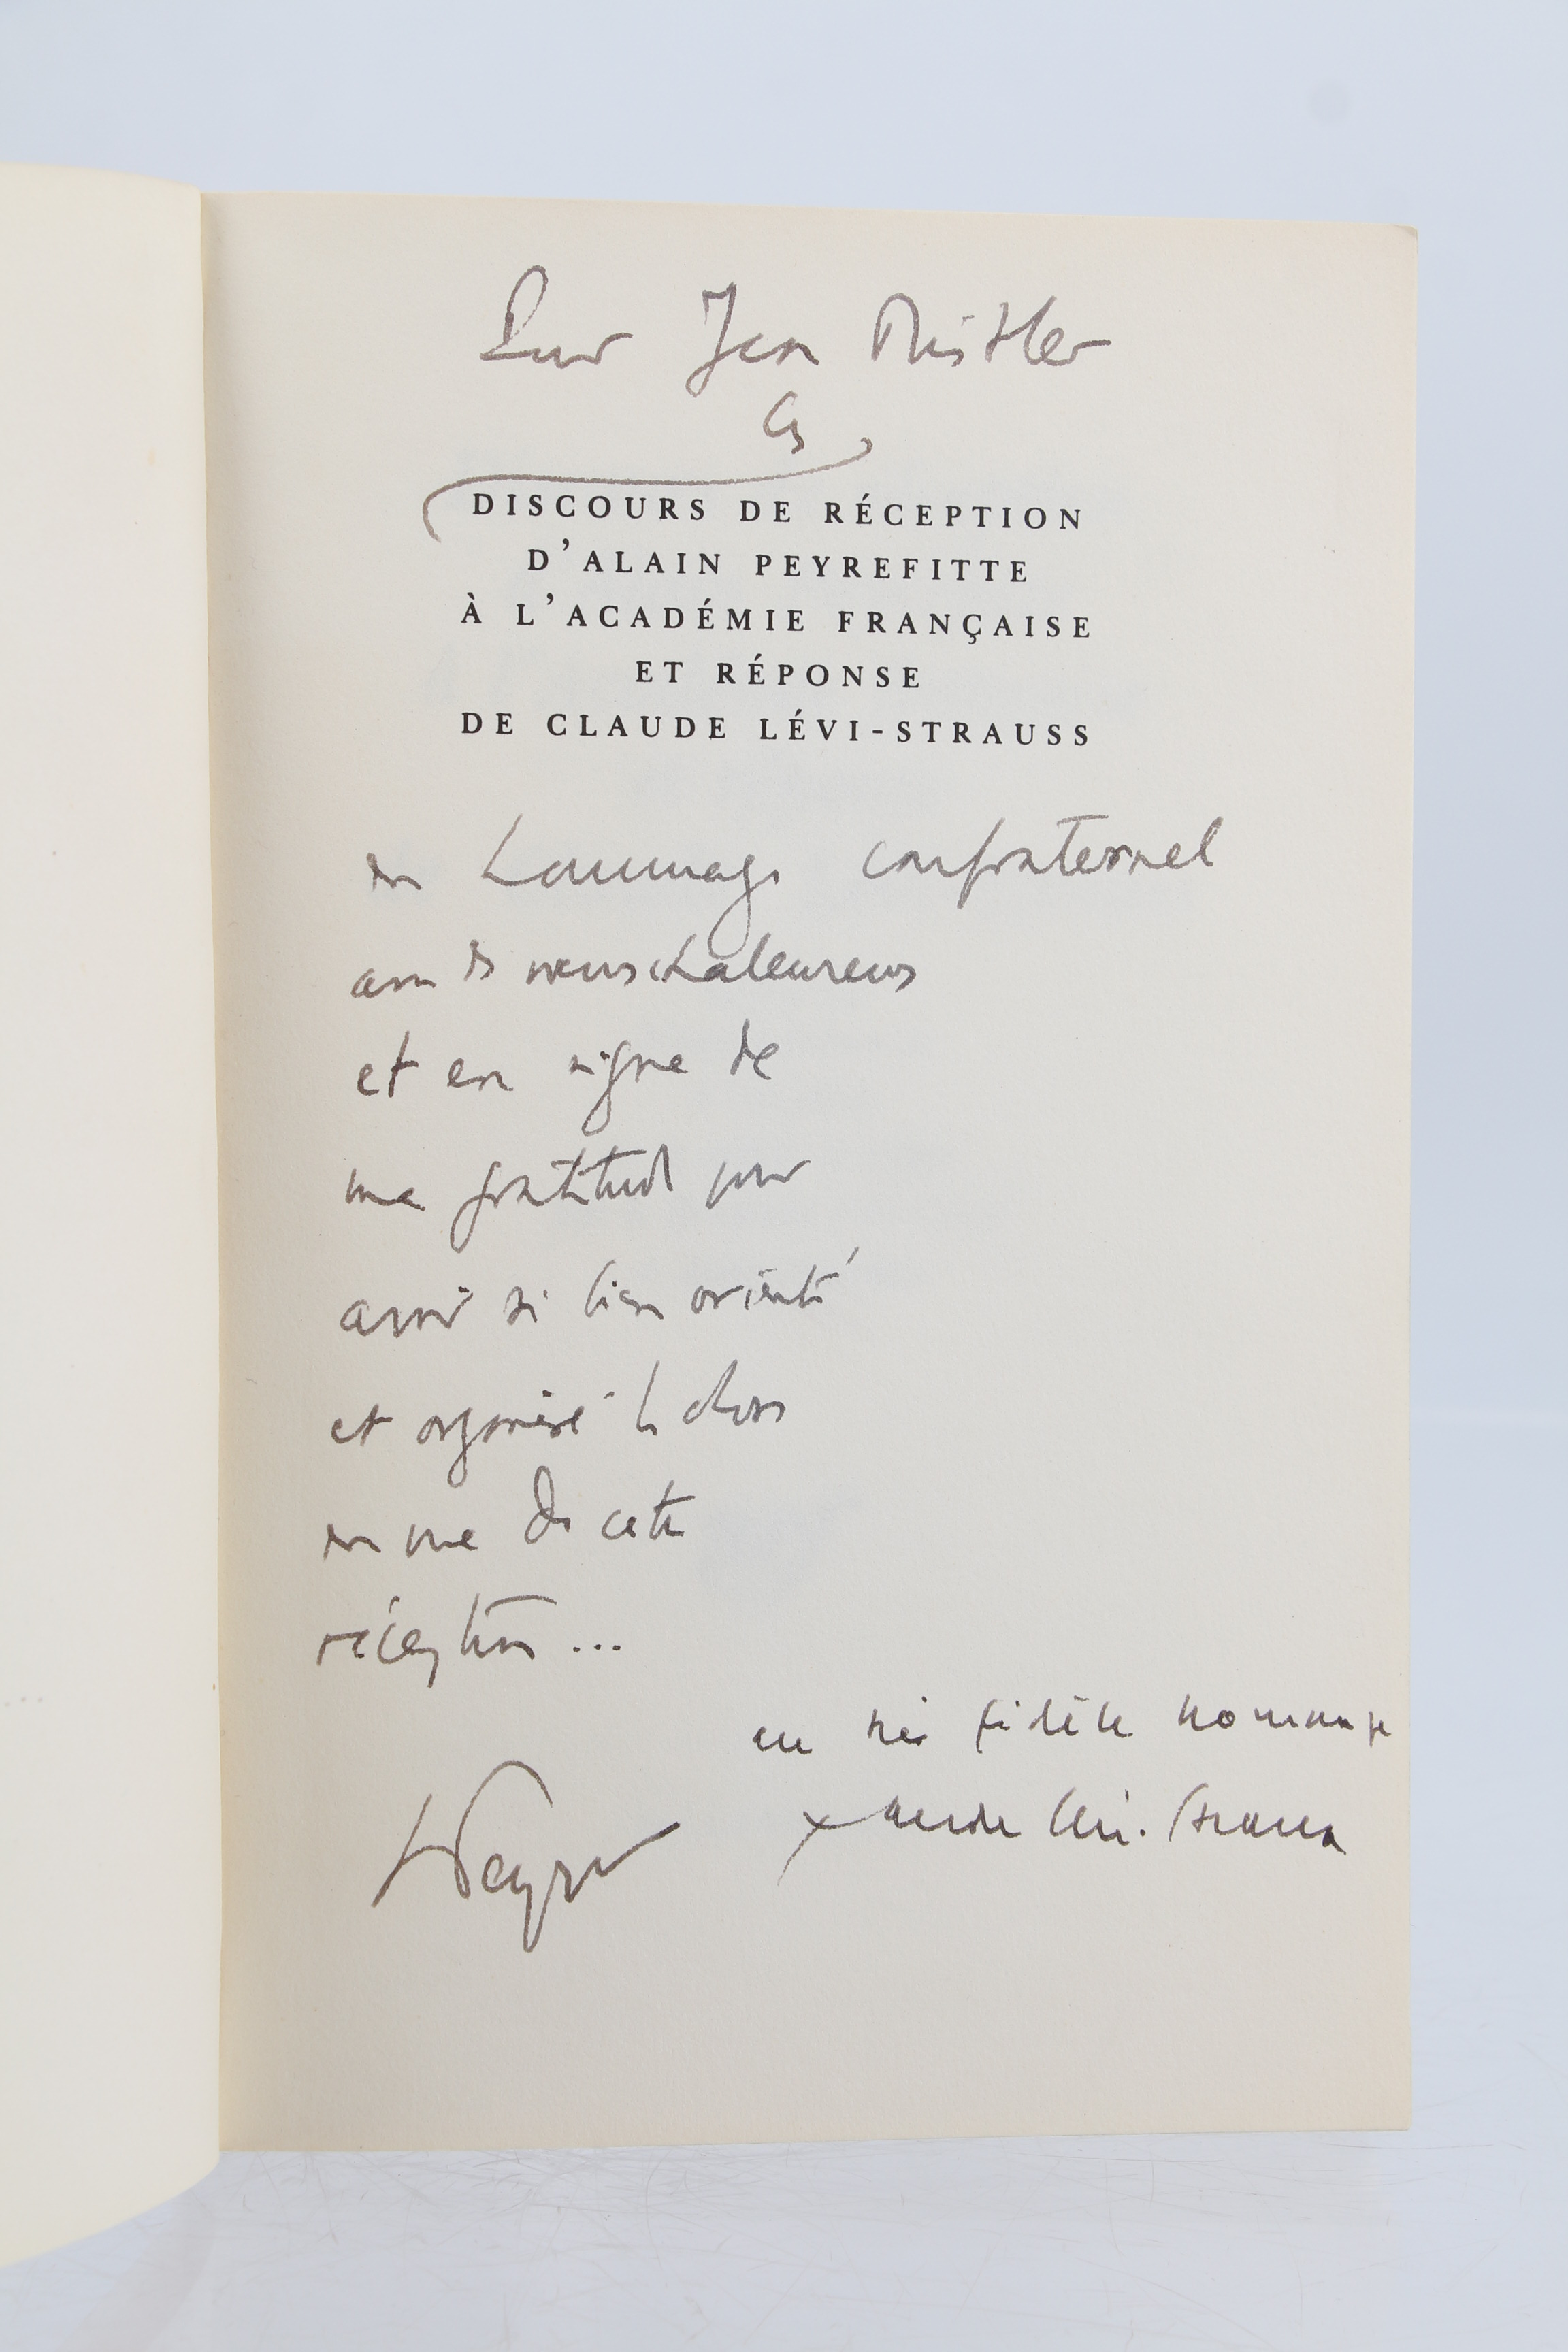 Pour Jean Mistler
ces
DISCOURS DE RÉCEPTION
D'ALAIN PEYREFITTE
À L'ACADÉMIE FRANÇAISE
ET RÉPONSE
DE CLAUDE LÉVI-STRAUSS
en hommage confraternel
avec des vœux chaleureux
et en signe de
ma gratitude pour
avoir si bien orienté
et organisé les choses
en vue de cette
réception...
en très fidèle hommage
Claude Lévi-Strauss